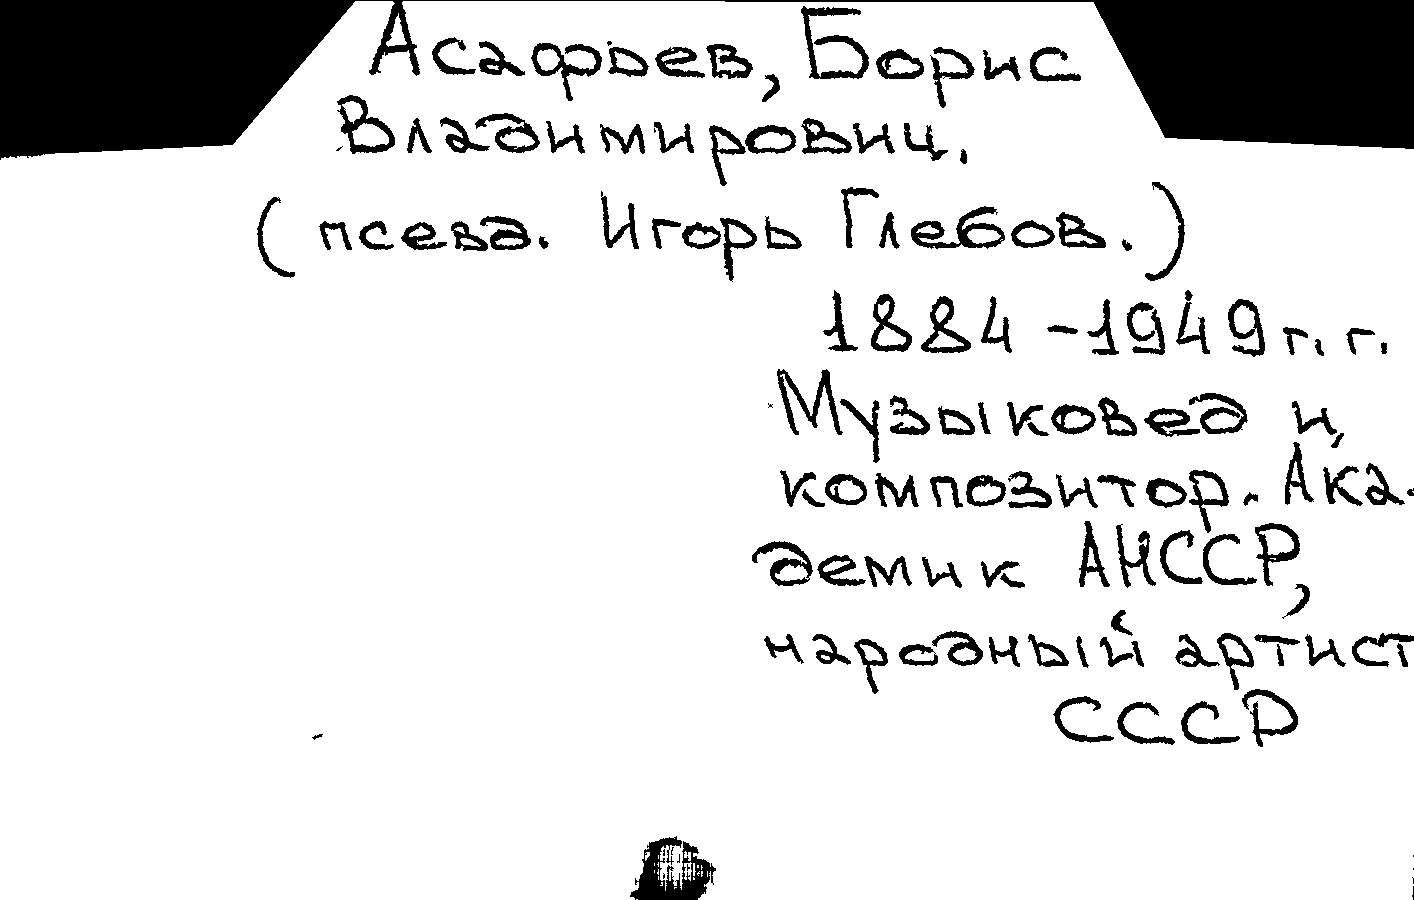 Асафьев, Борис
Владимирович.
(псевд. Игорь Глебов.)
1884-1949 г. г.
Музыковед и
композитор. Ака-
демик АНССР,
народный артист
СССР